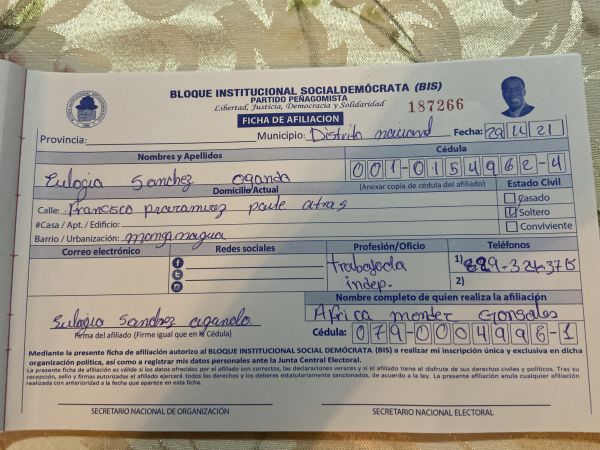 BLOQUE INSTITUCIONAL SOCIALDEMÓCRATA (BIS)
PARTIDO PEÑAGOMISTA
Libertad, Justicia, Democracia y Solidaridad
187266
FICHA DE AFILIACION
Provincia: Municipio: Distrito nacional Fecha: 29 11 21
Nombres y Apellidos Cédula
Eulogia Sanchez oganda 001-0154962-4
Domicilio Actual (Anexar copia de cédula del afiliado) Estado Civil
Calle: Francisco atras Casado
#Casa / Apt. / Edificio: Soltero
Barrio / Urbanización: manganagua Conviviente
Correo electrónico Redes sociales Profesión/Oficio Teléfonos
trabajeda 1) 829-324-3715
indep. 2)
Nombre completo de quien realiza la afiliación
Eulogia Sanchez oganda Africa mendez Gonsales
Firma del afiliado (Firme igual que en la Cédula) Cédula: 079-0004996-1
Mediante la presente ficha de afiliación autorizo al BLOQUE INSTITUCIONAL SOCIAL DEMÓCRATA (BIS) a realizar mi inscripción única y exclusiva en dicha
organización política, así como a registrar mis datos personales ante la Junta Central Electoral.
La presente ficha de afiliación es válida si los datos ofrecidos por el afiliado son correctos, las declaraciones veraces y si el afiliado tiene el disfrute de sus derechos civiles y políticos. Tras su
recepción, sello y firmas autorizadas el afiliado ejercerá todos los derechos y los deberes estatutariamente sancionados, de acuerdo a la ley. La presente afiliación anula cualquier afiliación
realizada con anterioridad a la fecha que aparece en esta ficha.
SECRETARIO NACIONAL DE ORGANIZACIÓN SECRETARIO NACIONAL ELECTORAL